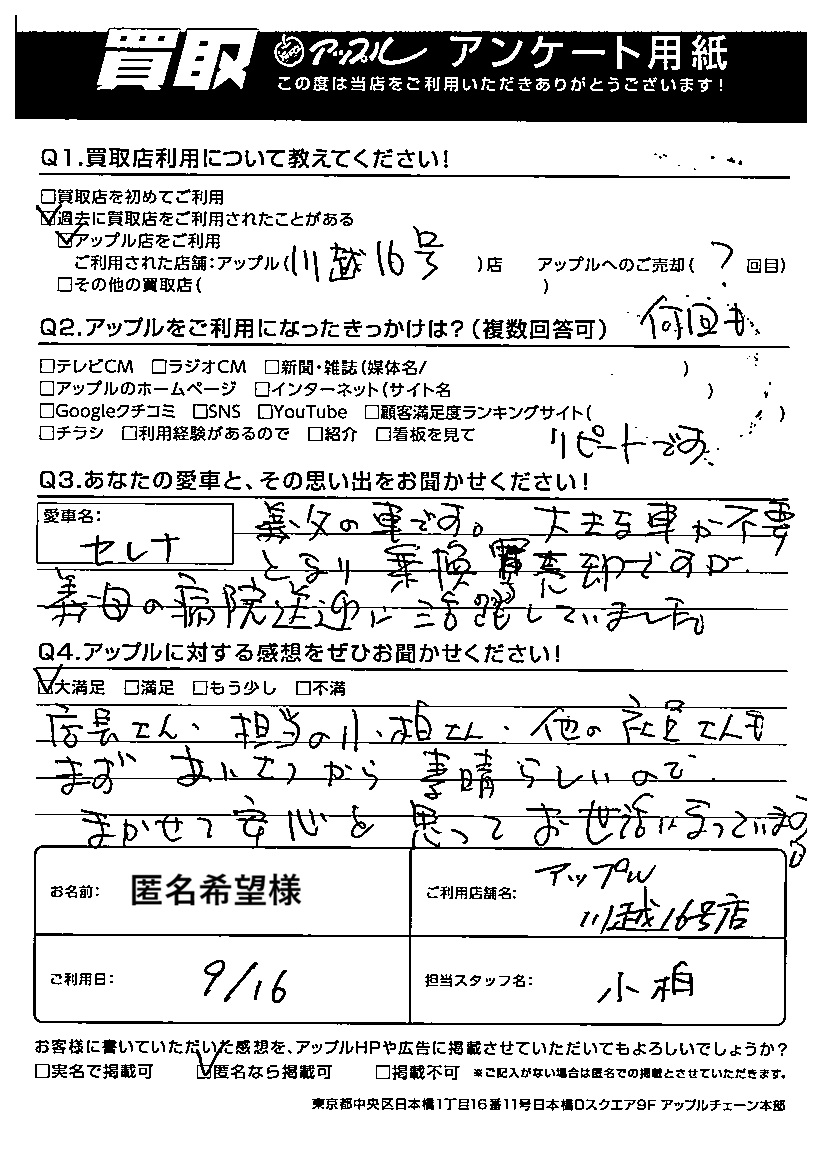 買取 アップル アンケート用紙
この度は当店をご利用いただきありがとうございます!
Q1.買取店利用について教えてください!
□買取店を初めてご利用
☑過去に買取店をご利用されたことがある
☑アップル店をご利用
ご利用された店舗:アップル(川越16号)店 アップルへのご売却(?回目)
□その他の買取店( )
何回も
Q2.アップルをご利用になったきっかけは?(複数回答可)
□テレビCM □ラジオCM □新聞・雑誌(媒体名/ )
□アップルのホームページ □インターネット(サイト名 )
□Googleクチコミ □SNS □YouTube □顧客満足度ランキングサイト( )
□チラシ □利用経験があるので □紹介 □看板を見て
リピートです。
Q3.あなたの愛車と、その思い出をお聞かせください!
愛車名: セレナ
義父の車です。大きな車が不要
となり乗換 売却ですが、
義母の病院送迎に活躍していました。
Q4.アップルに対する感想をぜひお聞かせください!
☑大満足 □満足 □もう少し □不満
店長さん、担当の小柏さん、他の社員さんも
まず あいさつから 素晴らしいので、
まかせて安心と思ってお世話になっています。
お名前: 匿名希望様
ご利用店舗名: アップル
川越16号店
ご利用日: 9/16
担当スタッフ名: 小柏
お客様に書いていただいた感想を、アップルHPや広告に掲載させていただいてもよろしいでしょうか?
□実名で掲載可 ☑匿名なら掲載可 □掲載不可 ※ご記入がない場合は匿名での掲載とさせていただきます。
東京都中央区日本橋1丁目16番11号日本橋Dスクエア9F アップルチェーン本部